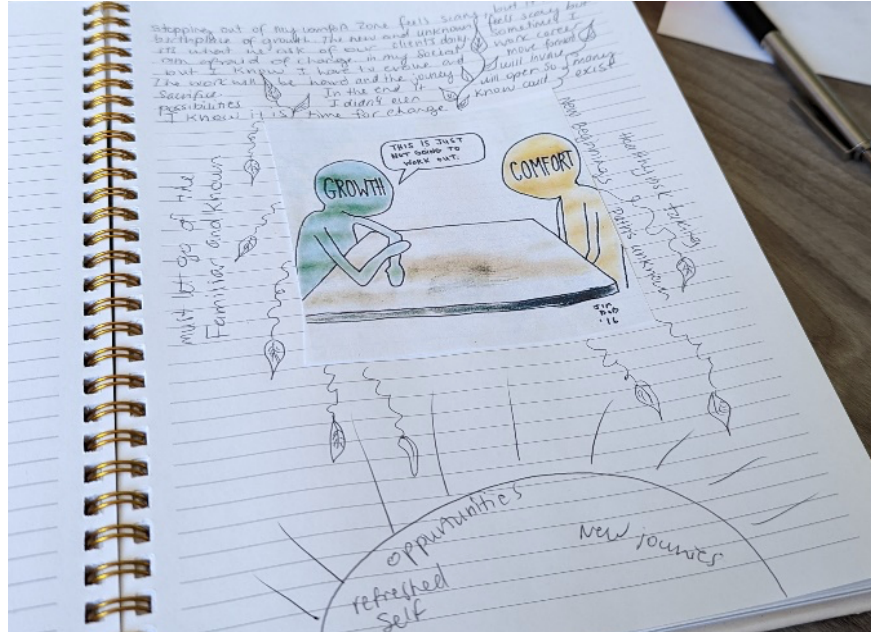 Stopping out of my comfort zone feels scary, but it
birthplace of growth. The new and unknown feels scary but
its what we ask of our clients daily. Sometimes I
am afraid of change in my social work career
but I know I have to evolve and move forward
The work will be hard and the journey will involve
sacrifice. In the end it will open so many
possibilities I didn't even know could exist
I know it is time for change
must let go of the
Familiar and known
New Beginnings
Healthy risk taking
& paths unknown
THIS IS JUST
NOT GOING TO
WORK OUT.
GROWTH
COMFORT
'16
opportunities
New journies
refreshed
self